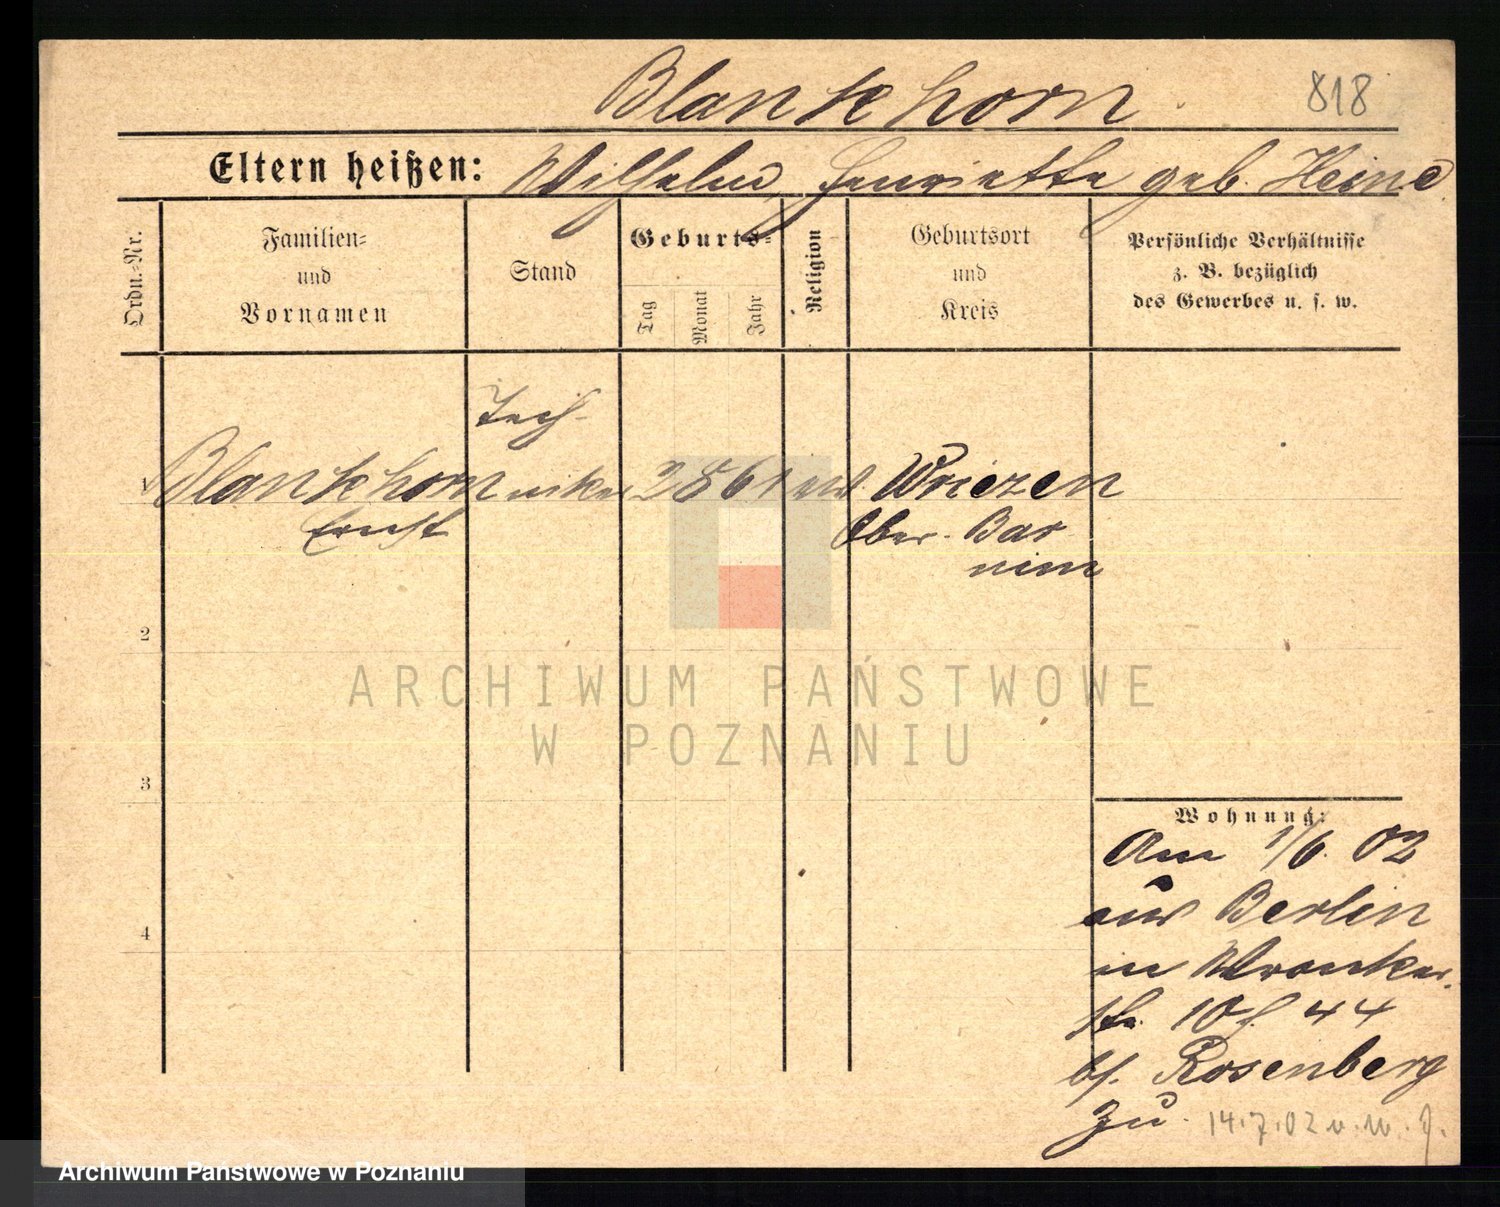 Blankhorn 818
Eltern heißen: Wilhelm Henriette geb. Heine
Ordn.-Nr.
Familien-
und
Vornamen
Stand
Geburts-
Tag
Monat
Jahr
Religion
Geburtsort
und
Kreis
Persönliche Verhältnisse
z. B. bezüglich
des Gewerbes u. s. w.
Tech-
1 Blankhorn niker 2 8 61 Wriezen
Ernst Ober-Bar
nim
2
ARCHIWUM PAŃSTWOWE
W POZNANIU
3
Wohnung:
Am 1/6. 02
aus Berlin
4
in Wronker
str. 10 44
bf. Rosenberg
zu. 14.7.02
Archiwum Państwowe w Poznaniu